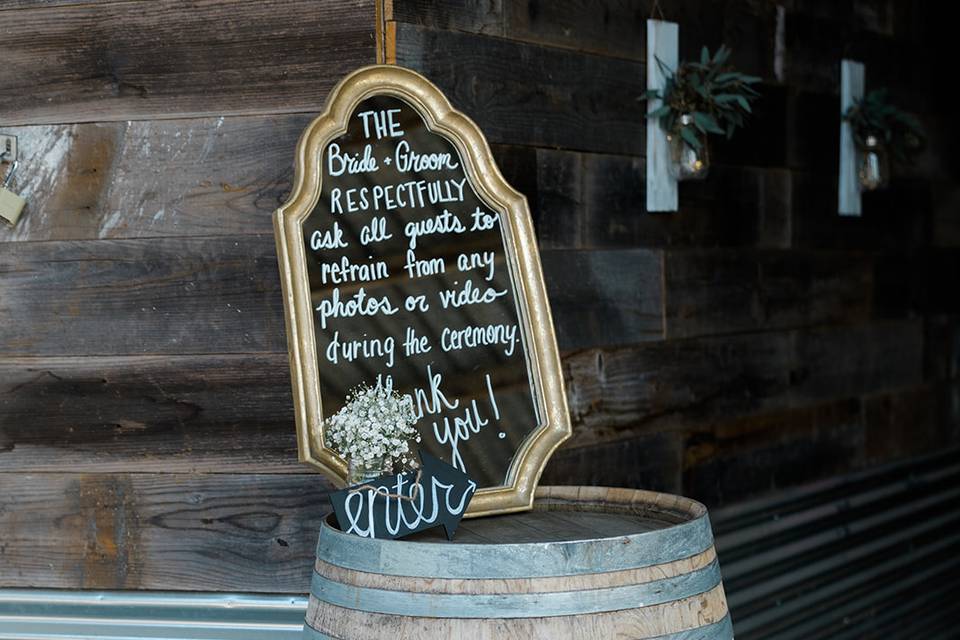 THE
Bride + Groom
RESPECTFULLY
ask all guests to
refrain from any
photos or video
during the ceremony.
you!
enter